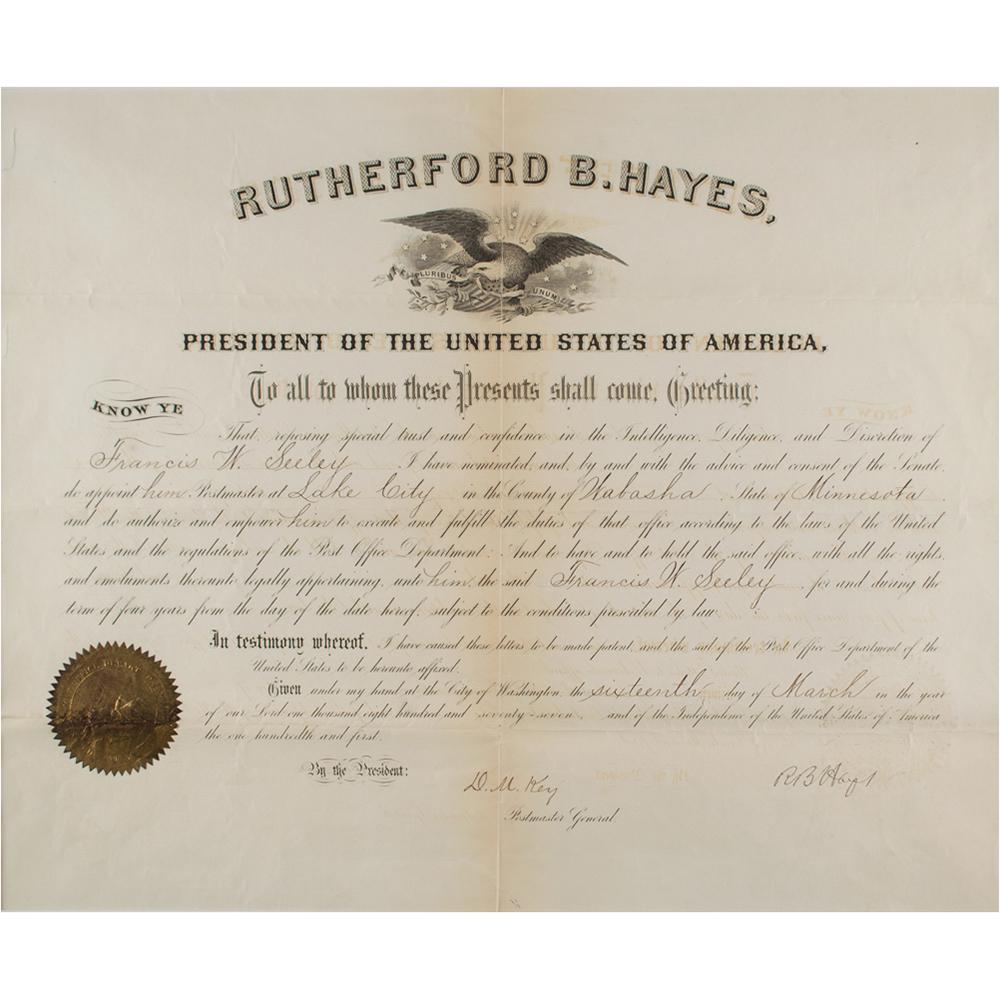 RUTHERFORD B. HAYES,
E PLURIBUS UNUM
PRESIDENT OF THE UNITED STATES OF AMERICA,
To all to whom these Presents shall come, Greeting:
KNOW YE
That, reposing special trust and confidence in the Intelligence, Diligence, and Discretion of
Francis W. Seeley I have nominated, and, by and with the advice and consent of the Senate,
do appoint him Postmaster at Lake City in the County of Wabasha State of Minnesota,
and do authorize and empower him to execute and fulfill the duties of that office according to the laws of the United
States and the regulations of the Post Office Department: And to have and to hold the said office, with all the rights
and emoluments thereunto legally appertaining, unto him, the said Francis W. Seeley for and during the
term of four years from the day of the date hereof, subject to the conditions prescribed by law.
In testimony whereof, I have caused these letters to be made patent, and the seal of the Post Office Department of the
United States to be hereunto affixed.
Given under my hand at the City of Washington, the sixteenth day of March in the year
of our Lord one thousand eight hundred and seventy-seven, and of the Independence of the United States of America
the one hundredth and first.
By the President:
D. M. Key
R B Hayes
Postmaster General.